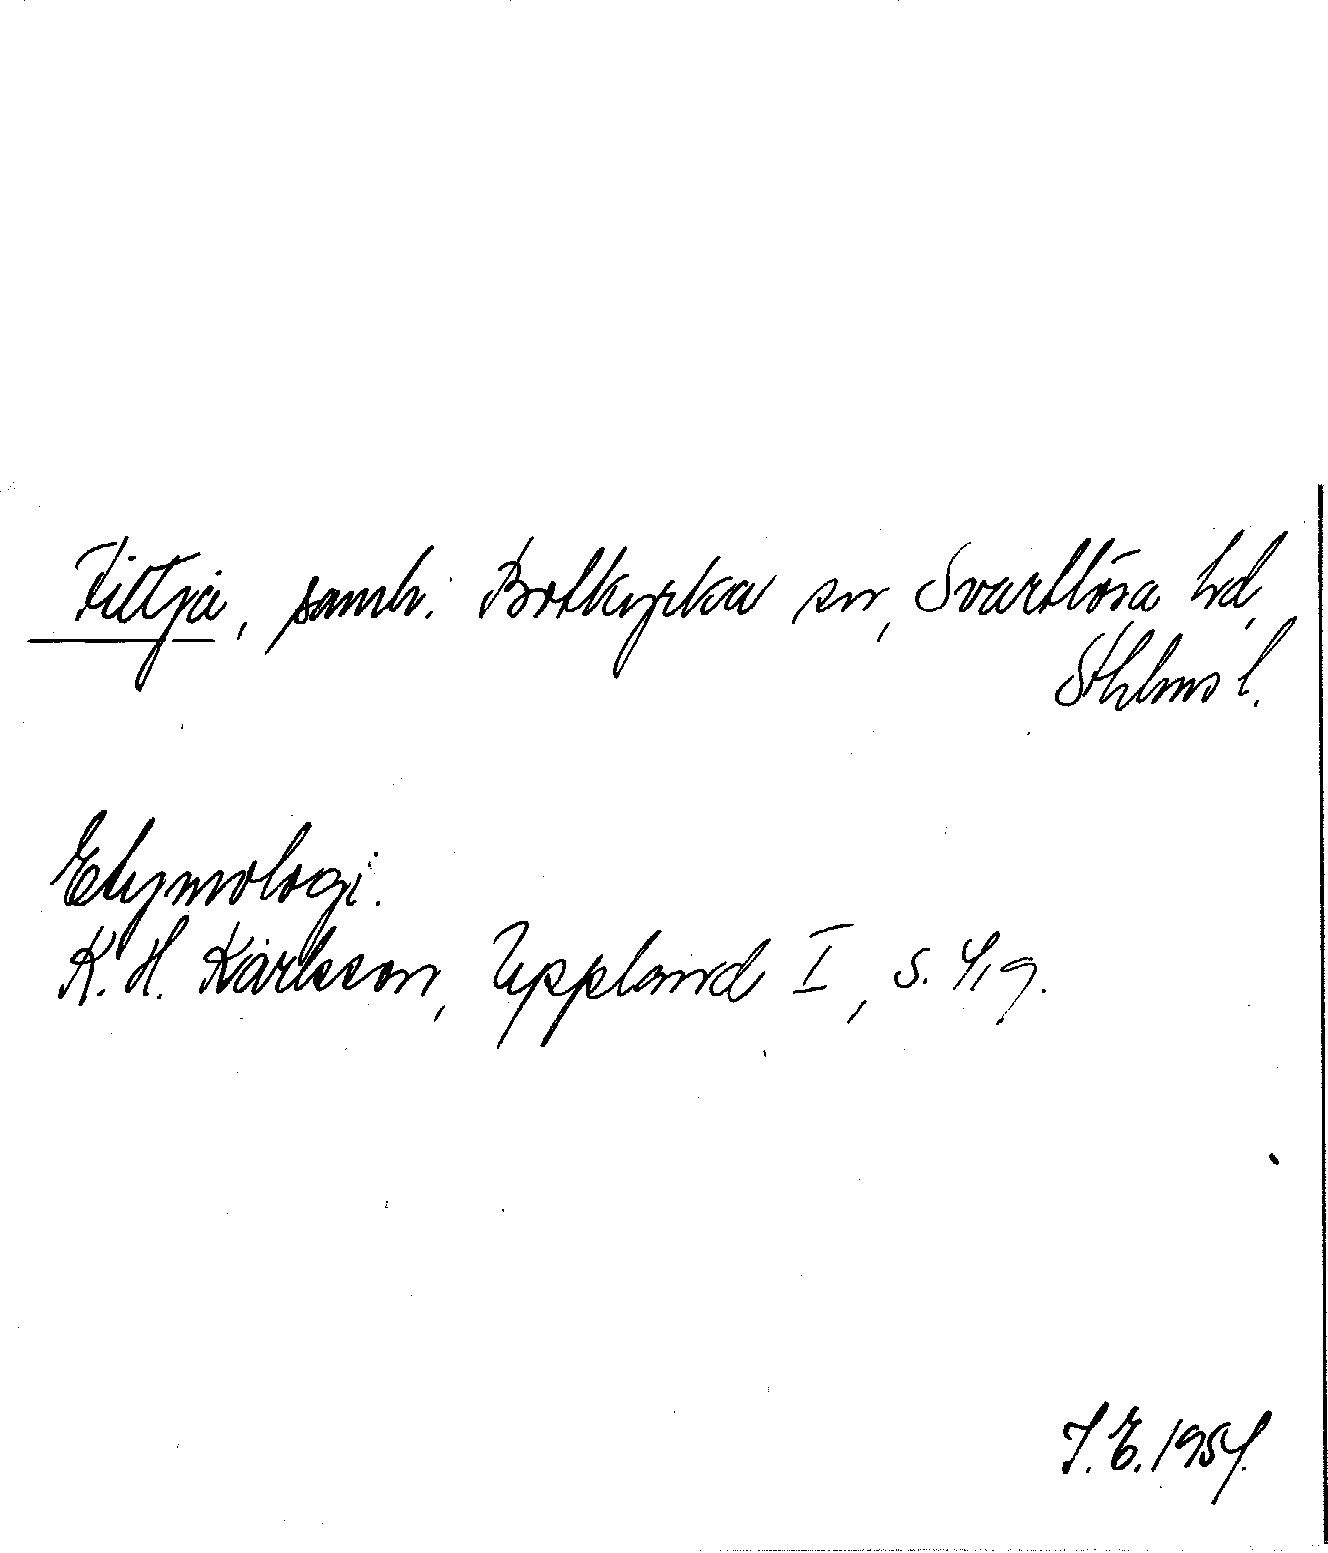 Fittja, samh. Botkyrka sn, Svartlösa hd,
Sthlms l.
Etymologi.
K. H. Karlsson, Uppland I, s. 419.
I. E. 1954.